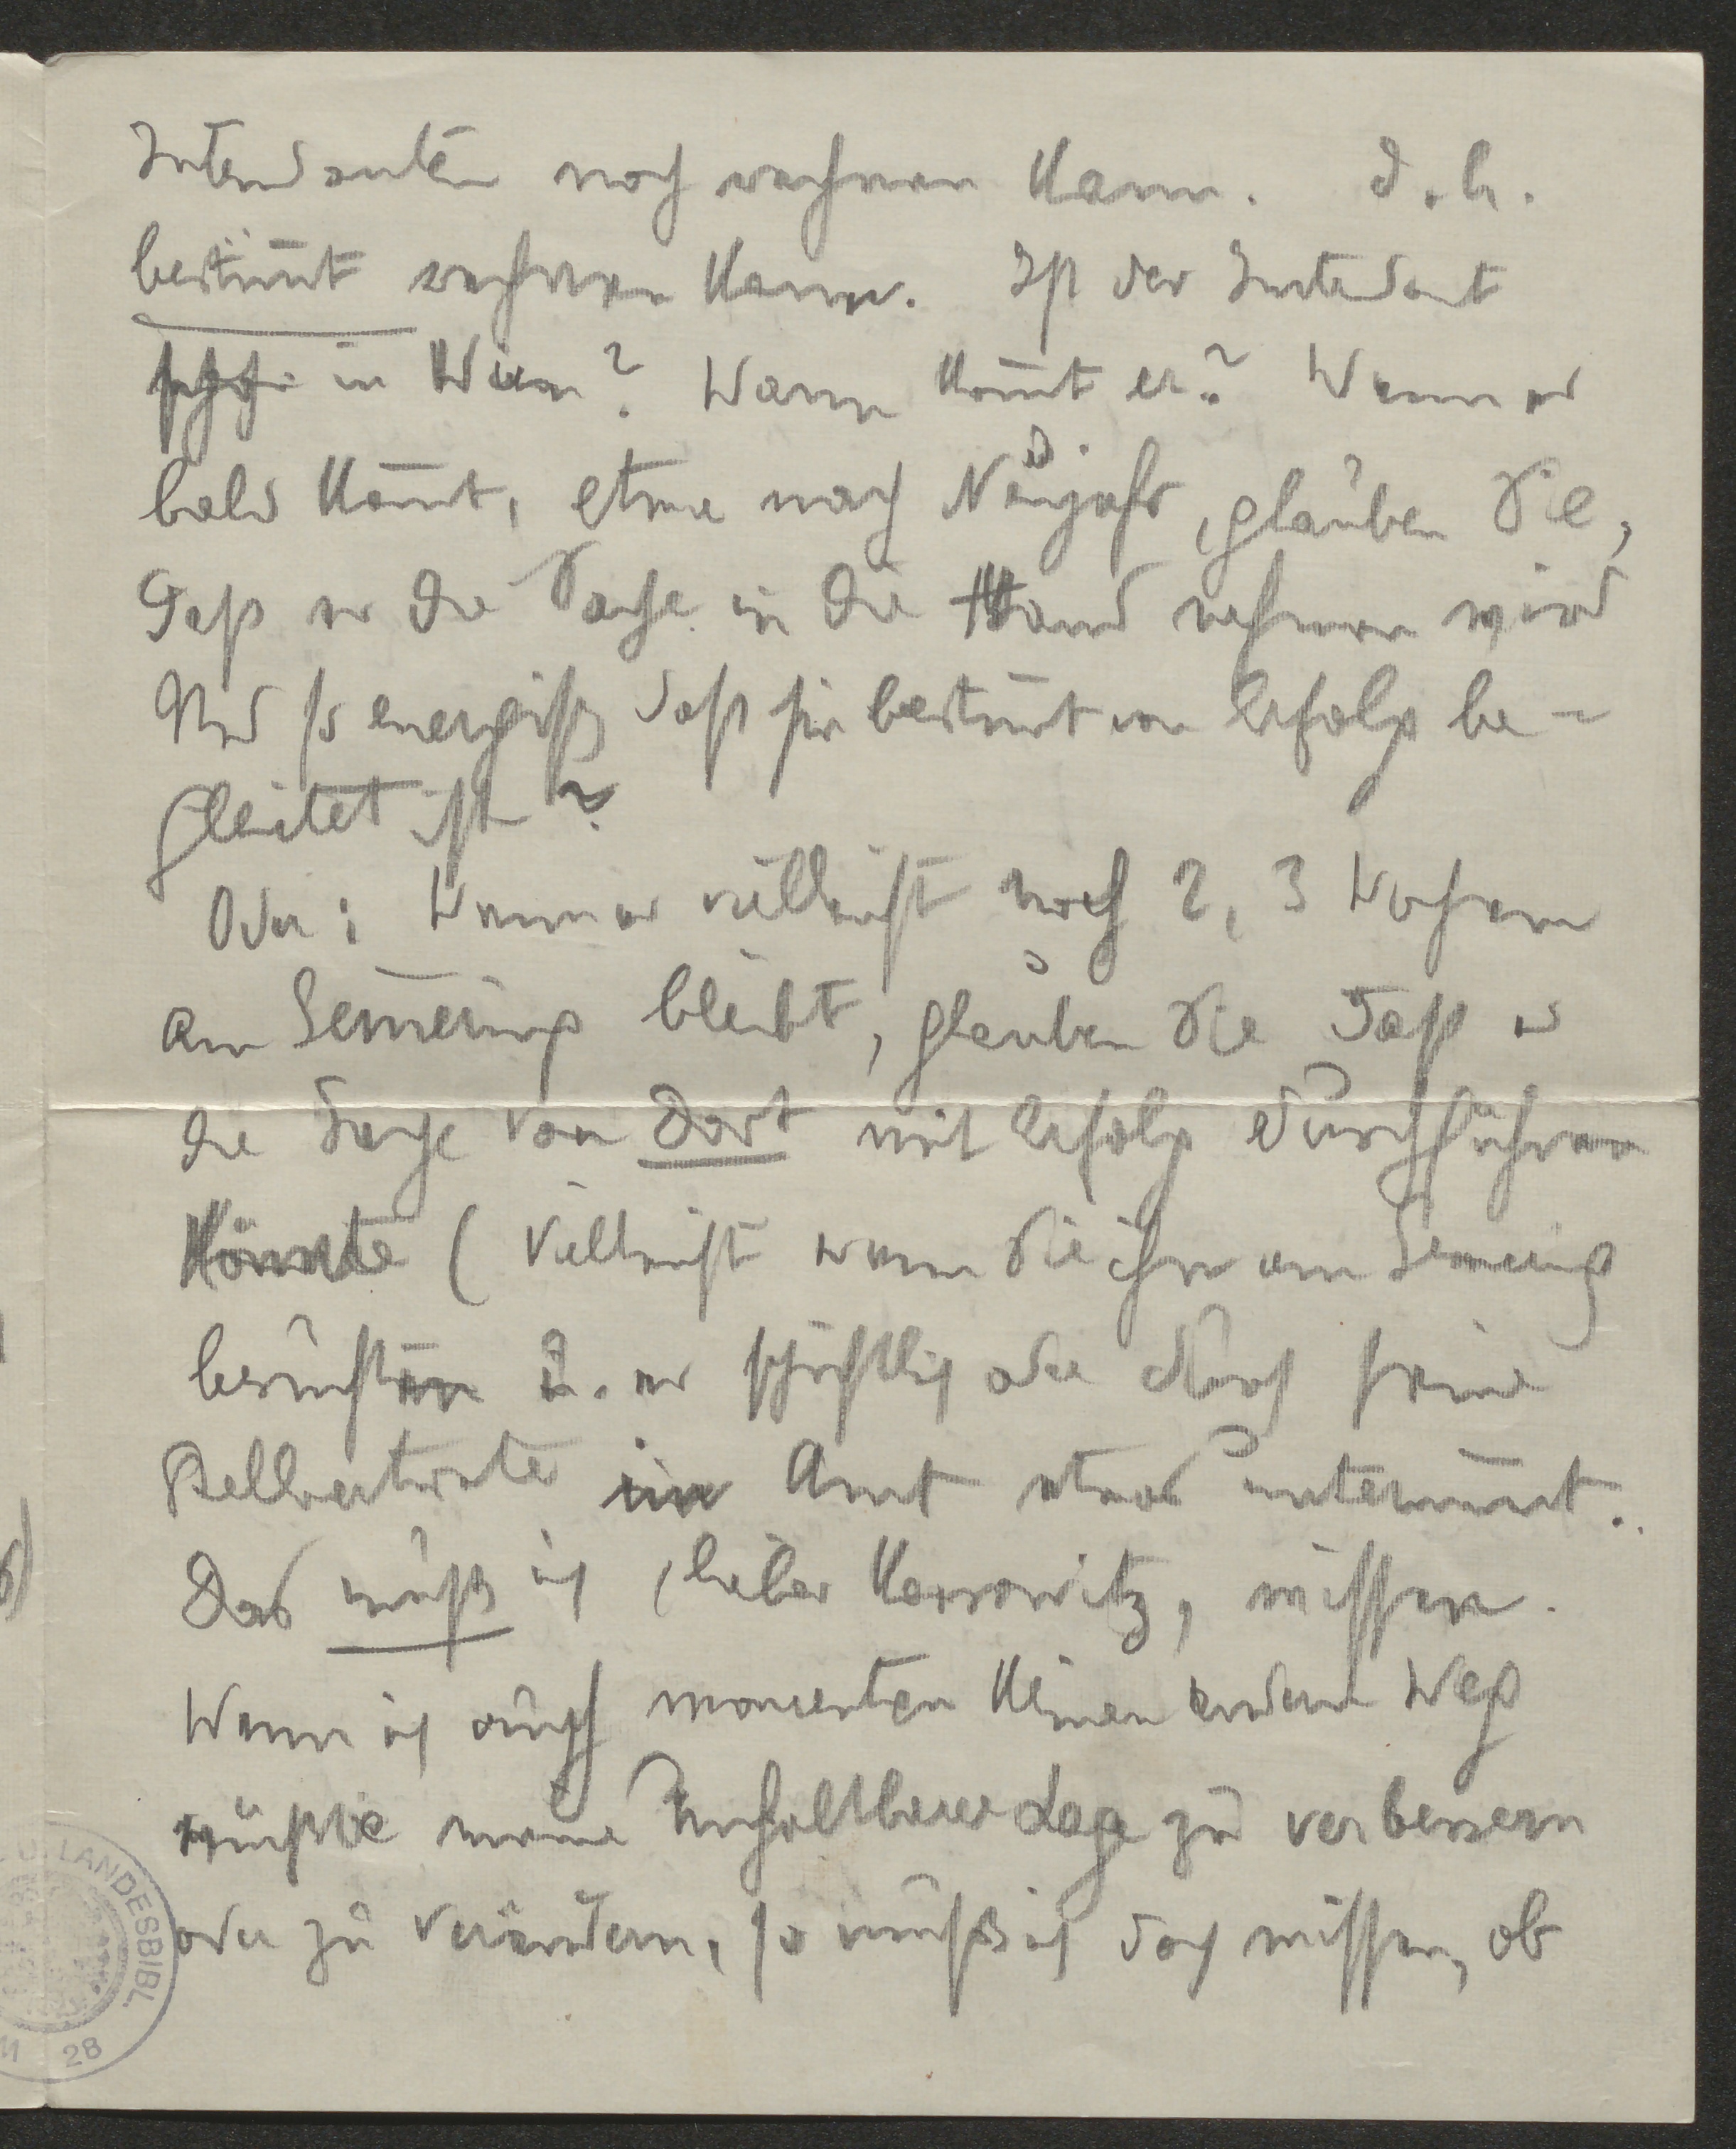 Intendanten noch rechnen kann. D. h.
bestim̄t rechnen kann. Ist der Intendant
schon in Wien? Wann kom̄t er? Wenn er
bald kom̄t, etwa nach Neujahr, glauben Sie,
dass er die Sache in die Hand nehmen wird
Und so energisch dass sie bestim̄t von Erfolg be-
gleitet ist?
Oder: Wenn er vielleicht noch 2, 3 Wochen
am Sem̄ering bleibt, glauben Sie dass er
die Sache von dort mit Erfolg durchführen
könnte (vielleicht wenn Sie ihn am Sem̄ering
besuchten u. er schriftlich oder durch seine
Stellvertreter im Amt etwas unternim̄t.
Das muß ich, lieber Horowitz, wissen.
Wenn ich auch momentan keinen andern Weg
wüsste meine unhaltbare Lage zu verbessern
oder zu verändern, so muß ich doch wissen, ob
LANDESBIBL.
28